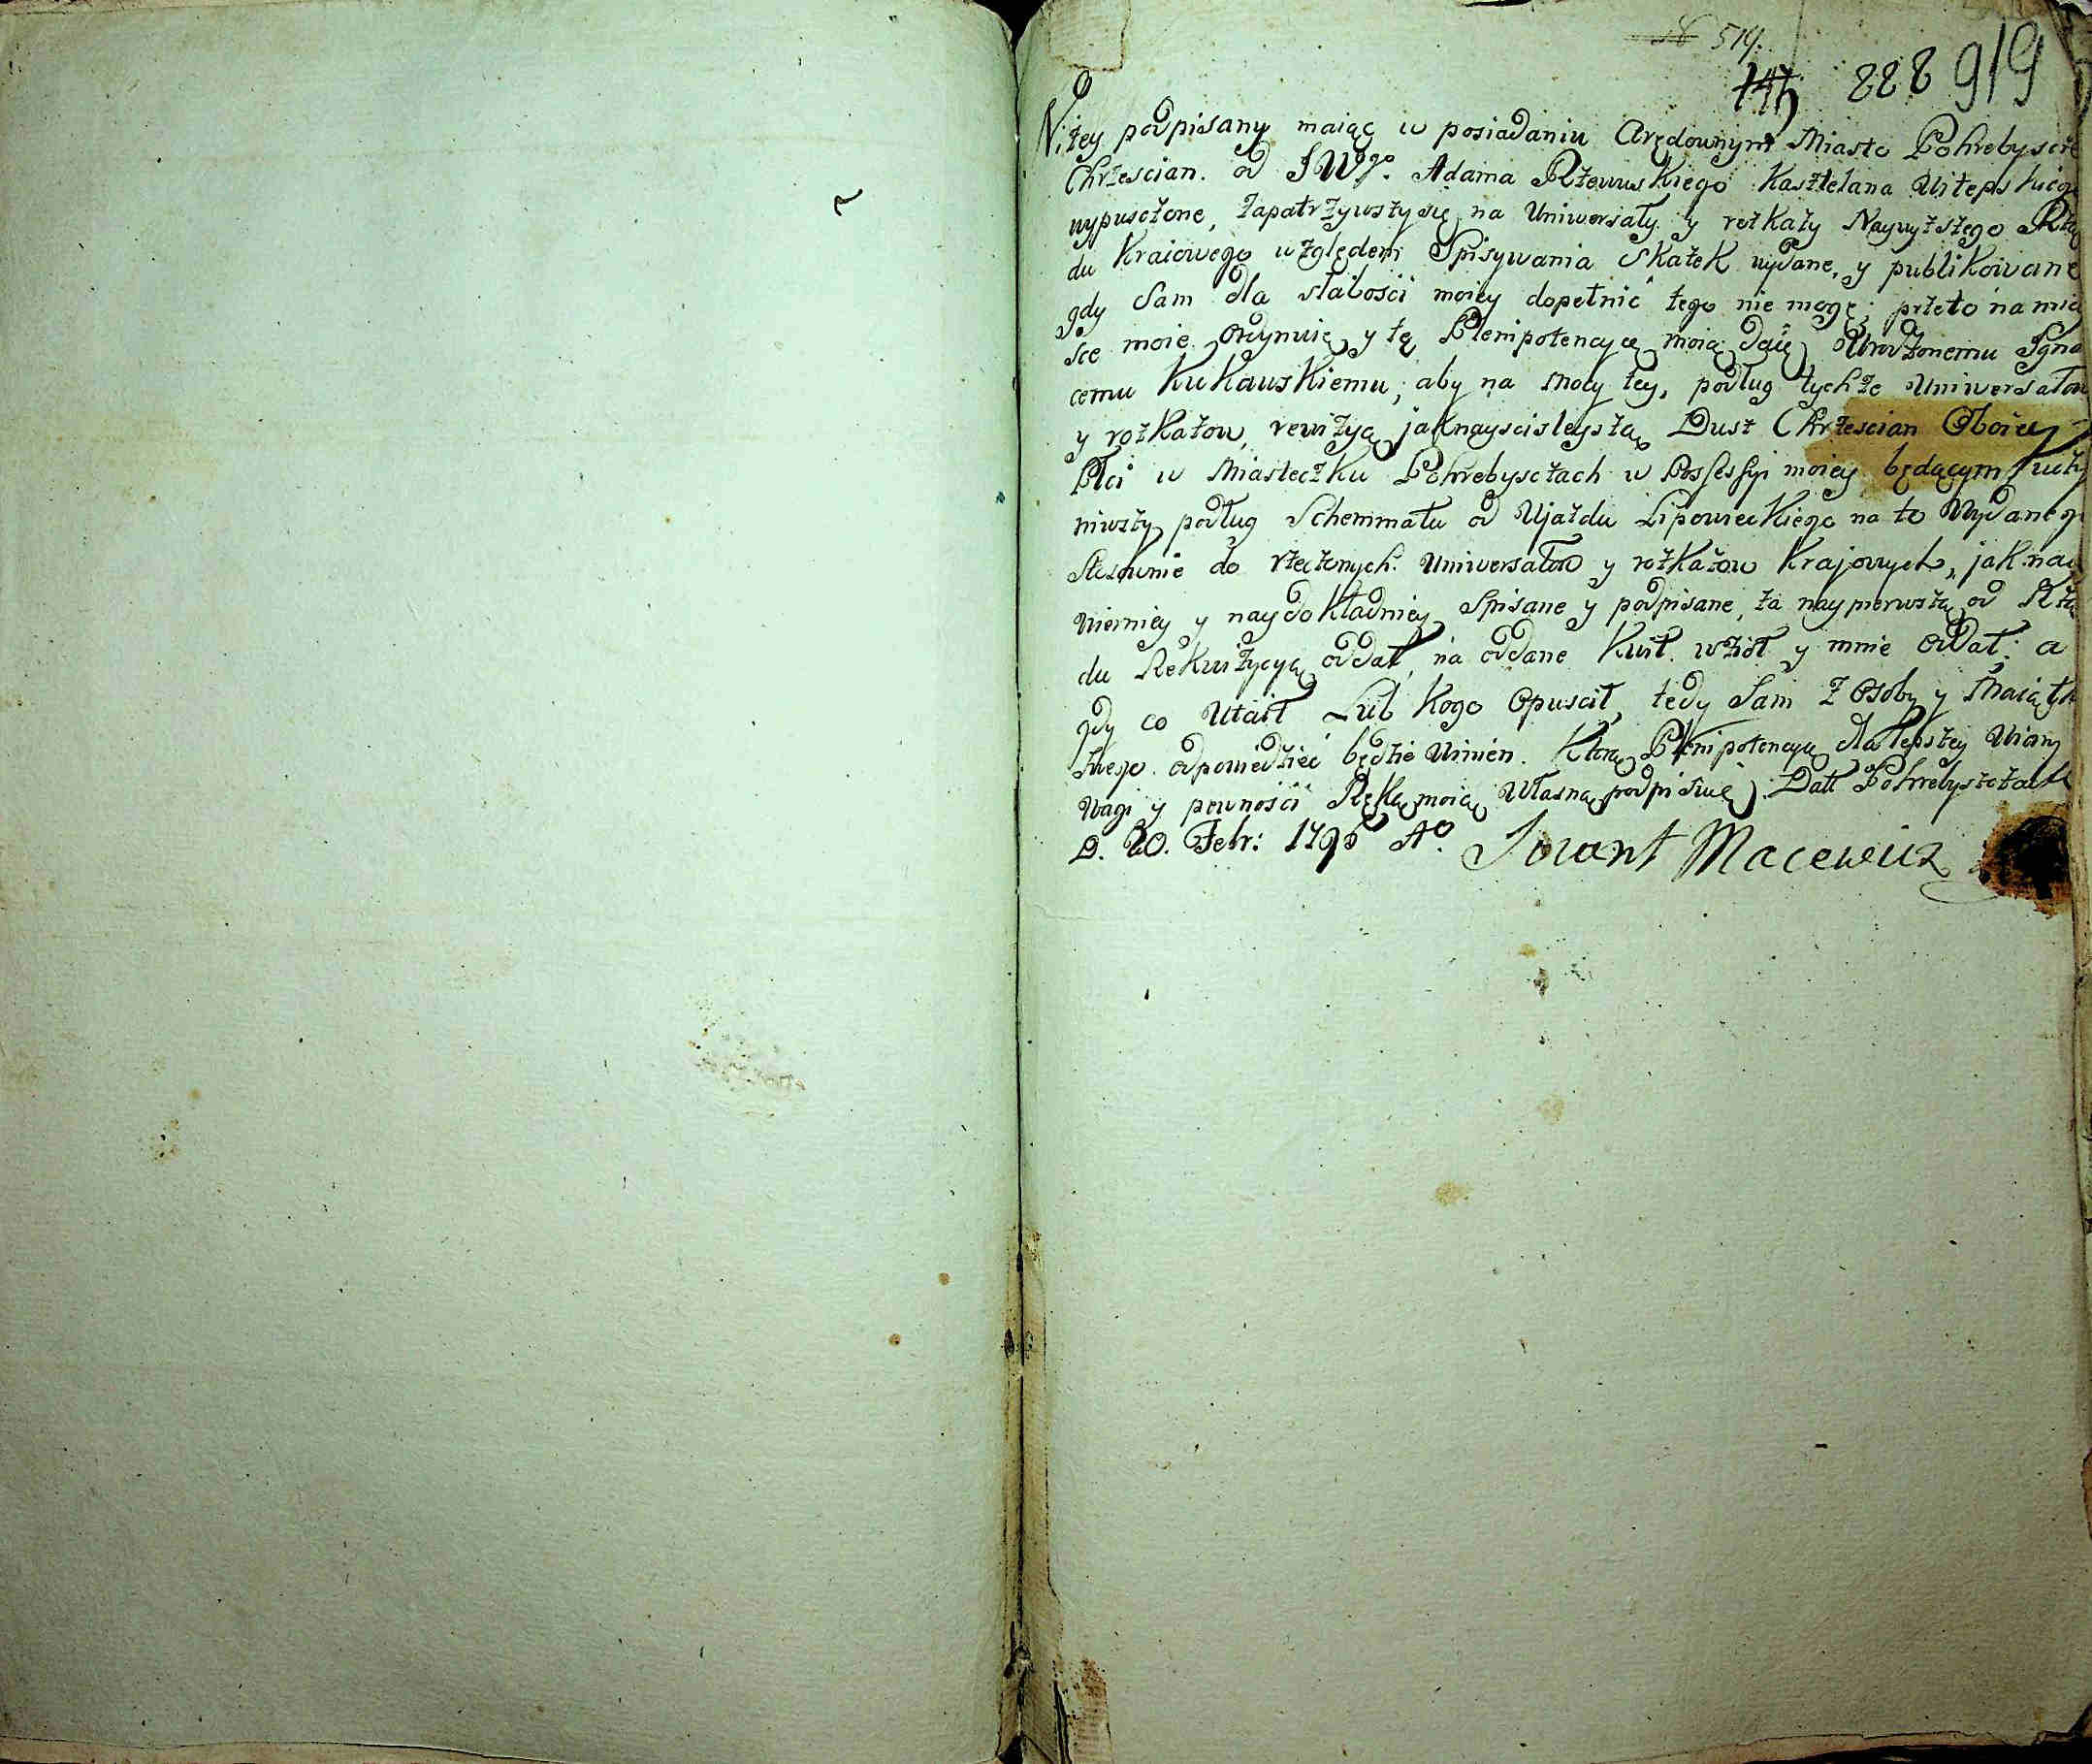 № 519.
888 919
Niżey podpisany maiąc w posiadaniu Arędownym Miasto Pohrebyscze
Chrzescian. od JWgo. Adama Rzewuskiego Kasztelana Witepskiego
wypusczone, zapatrzywszy się na Uniwersały y rozkazy Naywyższego Rzą
du Kraiowego względem Spisywania Skazek wydane, y publikowane
gdy Sam dla słabości moiey dopełnić tego nie mogę; przeto na miey
sce moie ordynuię y tą Plenipotencyą moią daię Urodzonemu Igna
cemu Kukawskiemu, aby na mocy tey, podług tychże Uniwersałow
y rozkazow, rewizyą jaknayscisleyszą Dusz Chrzescian Oboiey
Płci w Miasteczku Pohrebysczach w Possessyi moiey będącym uczy
niwszy podług Schemmatu od Ujazdu Lipowieckiego na to Wydanego
Stosownie do rzeczonych Uniwersałow y rozkazow Krajowych, jak nay
wierniey y naydokładniey Spisane y podpisane, za naypierwszą od Rzą
du Rekwizycyą oddał, na oddane Kwit wziął y mnie oddał; a
gdy co Utaił Lub kogo Opuscił, tedy Sam z Osoby y Maiątku
swego odpowiedzieć będzie Winien. Ktorą Plenipotencyą dla lepszey Wiary
Wagi y pewności Ręką moią Własną podpisuię. Datt Pohrebyszczach
D. 20. Febr: 1795 Ao. Macewicz